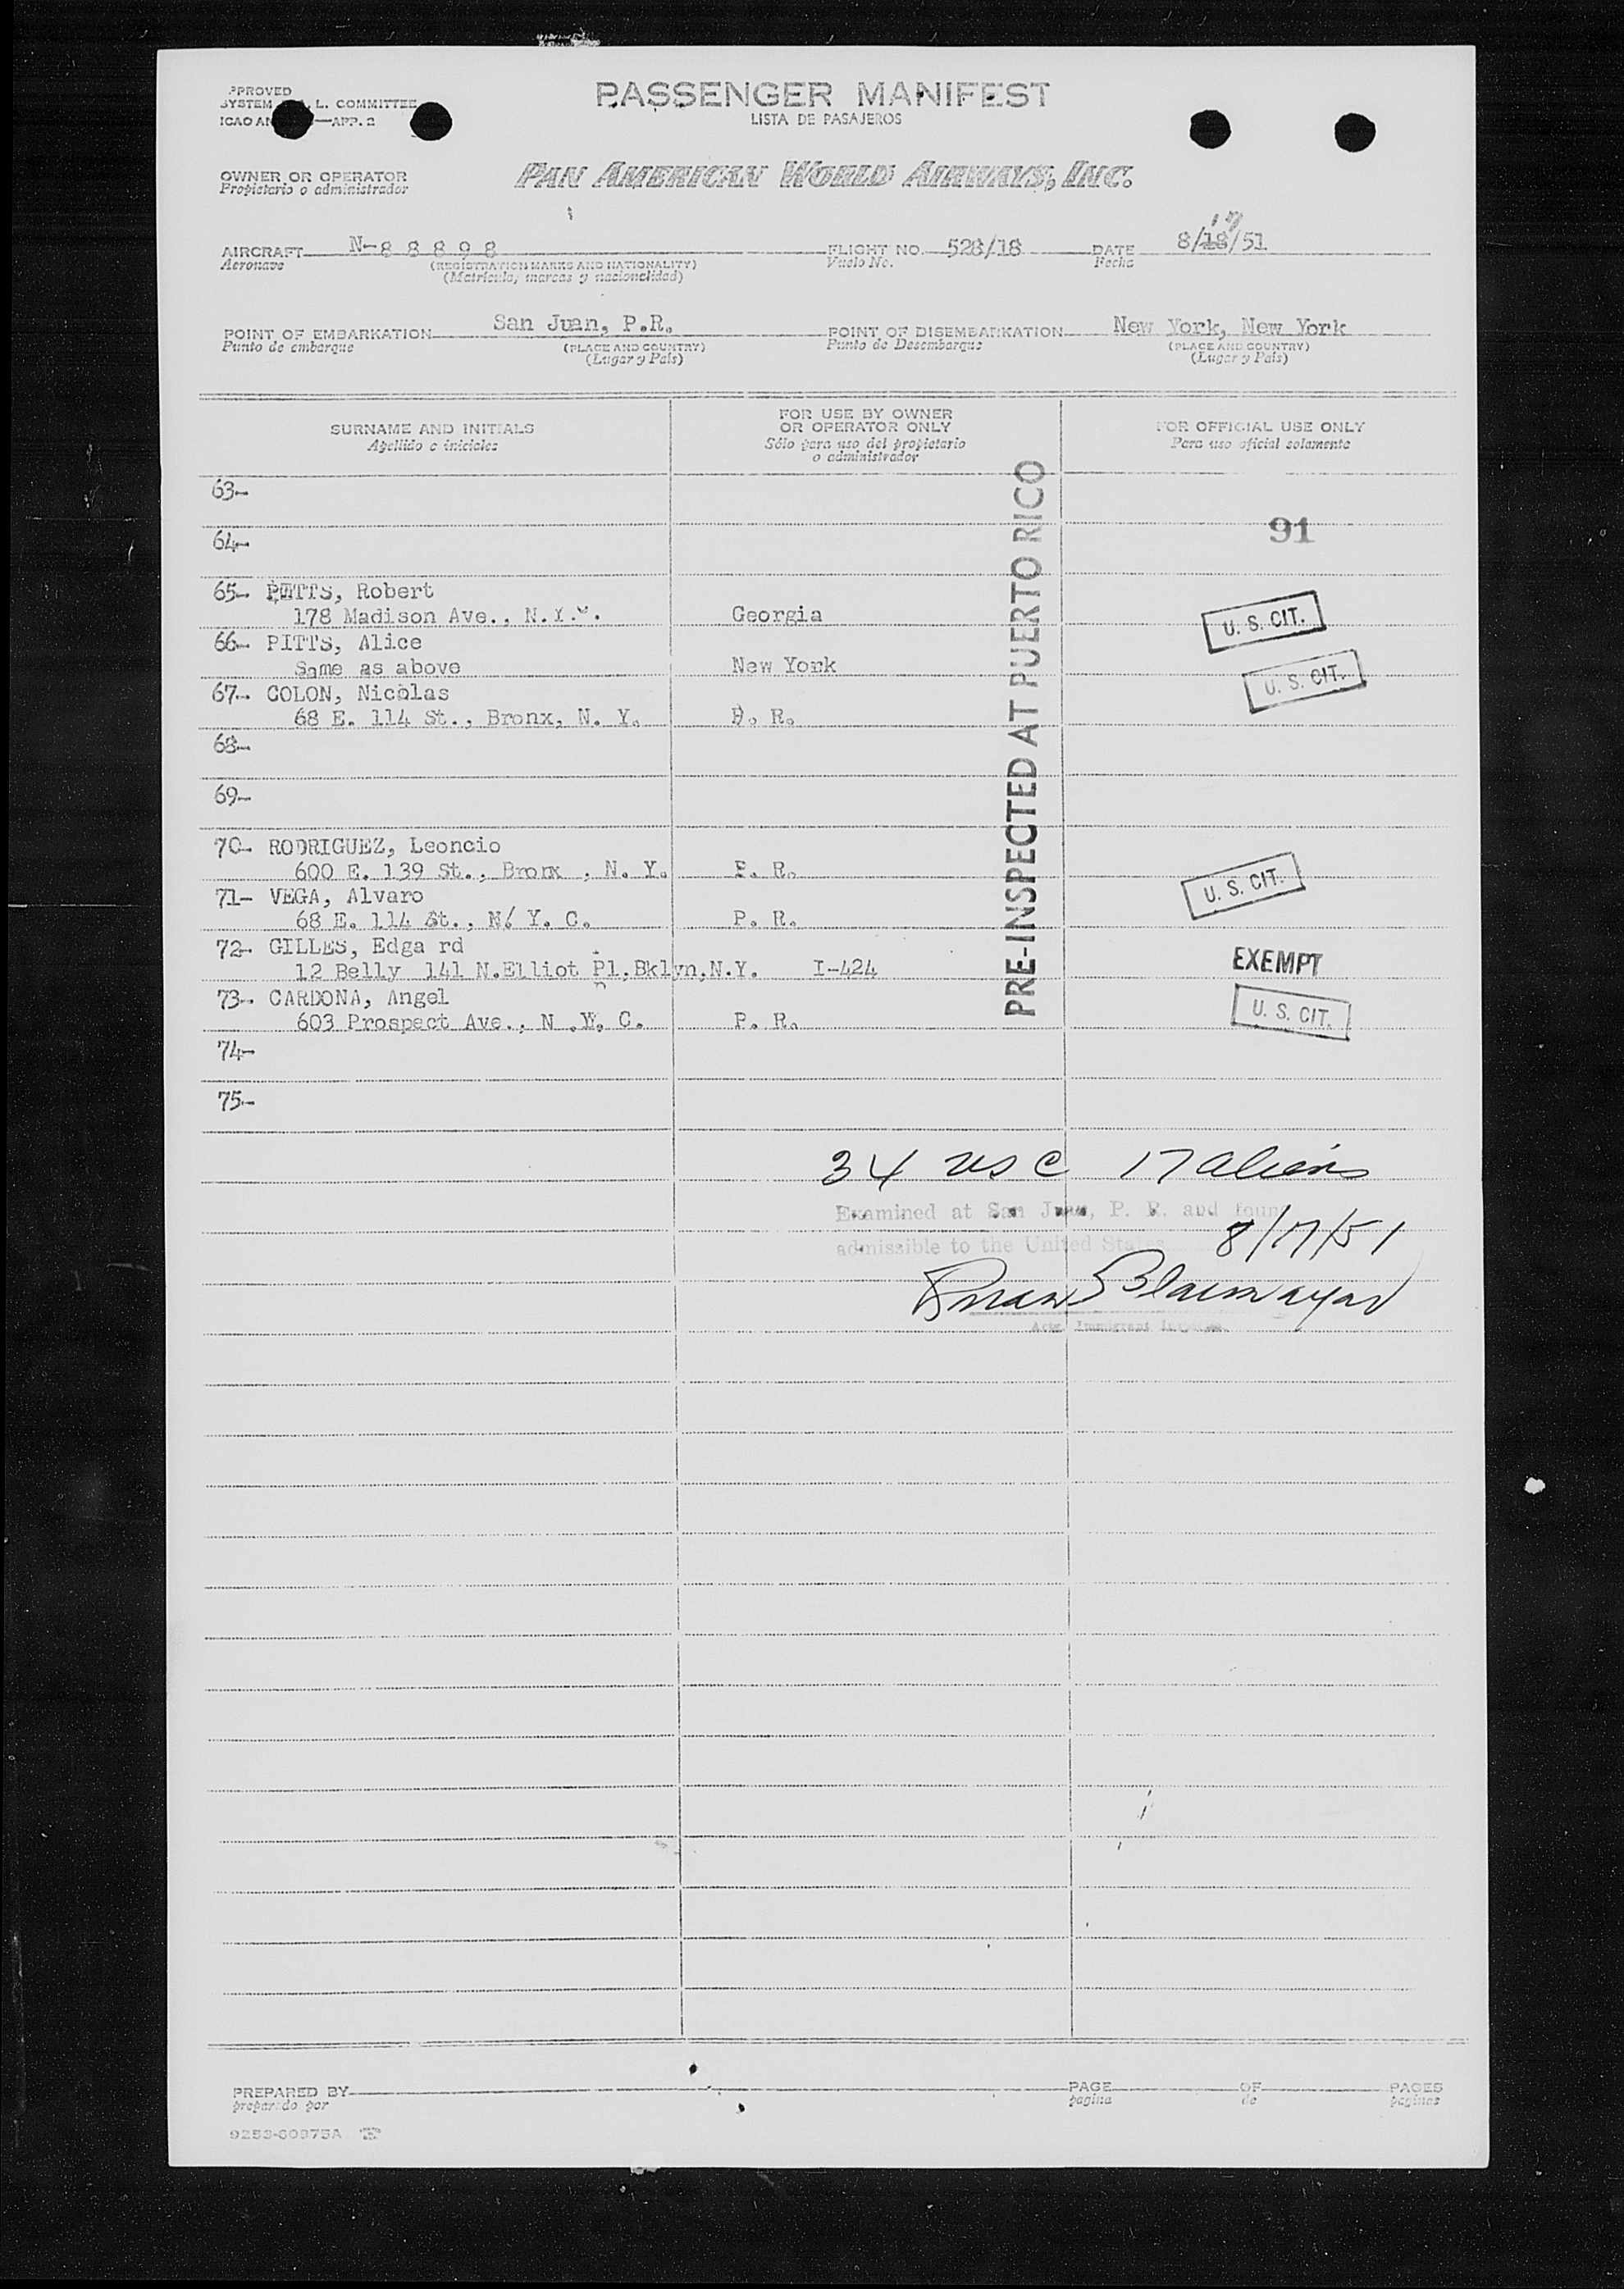 PASSENGER MANIFEST
LISTA DE PASAJEROS
SYSTEM L. COMMITTEE
ICAO —APP. 2
OWNER OR OPERATOR
Propietario o administrador
PAN AMERICAN WORLD AIRWAYS, INC.
AIRCRAFT N-88898 FLIGHT NO. 528/18 DATE 8/18/51 17
Aeronave (REGISTRATION MARKS AND NATIONALITY) Vuelo No. Fecha
(Matrícula, marcas y nacionalidad)
POINT OF EMBARKATION San Juan, P.R. POINT OF DISEMBARKATION New York, New York
Punto de embarque (PLACE AND COUNTRY) Punto de Desembarque (PLACE AND COUNTRY)
(Lugar y País) (Lugar y País)
SURNAME AND INITIALS
Apellido e iniciales
FOR USE BY OWNER
OR OPERATOR ONLY
Sólo para uso del propietario
o administrador
FOR OFFICIAL USE ONLY
Para uso oficial solamente
PRE-INSPECTED AT PUERTO RICO
63-
91
64-
65- PITTS, Robert
178 Madison Ave., N.Y. Georgia U. S. CIT.
66- PITTS, Alice
Same as above New York U. S. CIT.
67- COLON, Nicolas
68 E. 114 St., Bronx, N. Y. P. R.
68-
69-
70- RODRIGUEZ, Leoncio
600 E. 139 St., Bronx , N. Y. P. R. U. S. CIT.
71- VEGA, Alvaro
68 E. 114 St., N/ Y. C. P. R.
72- GILLES, Edga rd EXEMPT
12 Belly 141 N.Elliot Pl,Bklyn,N.Y. I-424
73- CARDONA, Angel
603 Prospect Ave., N .Y. C. P. R. U. S. CIT.
74-
75-
34 USC 17 aliens
Examined at San Juan, P. R. and found
admissible to the United States 8/17/51
Immigrant
PREPARED BY PAGE OF PAGES
preparado por página de páginas